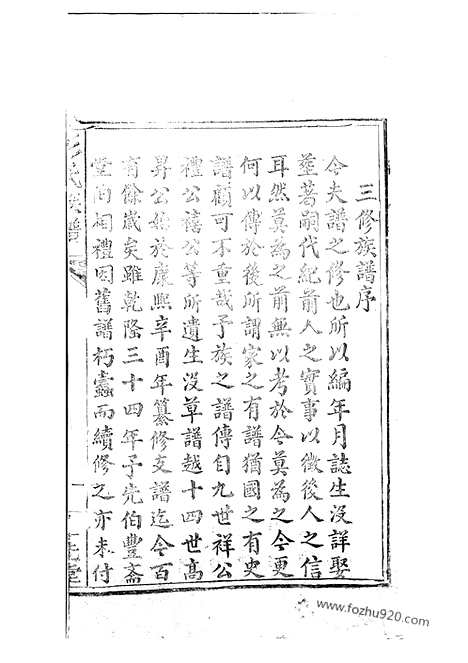 三修族譜序
今夫譜之修也所以編年月誌生沒詳娶
塟著嗣代紀前人之實事以徵後人之信
耳然莫為之前無以考於今莫為之今更
何以傳於後所謂家之有譜猶國之有史
譜顧可不重哉予族之譜傳自九世祥公
禮公禧公等所遺生沒草譜越十四世高
昇公始於康熙辛酉年纂修支譜迄今百
有餘歲矣雖乾隆三十四年予先伯豐斎
堂伯相禮因舊譜朽蠹而續修之亦未付
氏族譜
一
堂
www.fozhu920.com